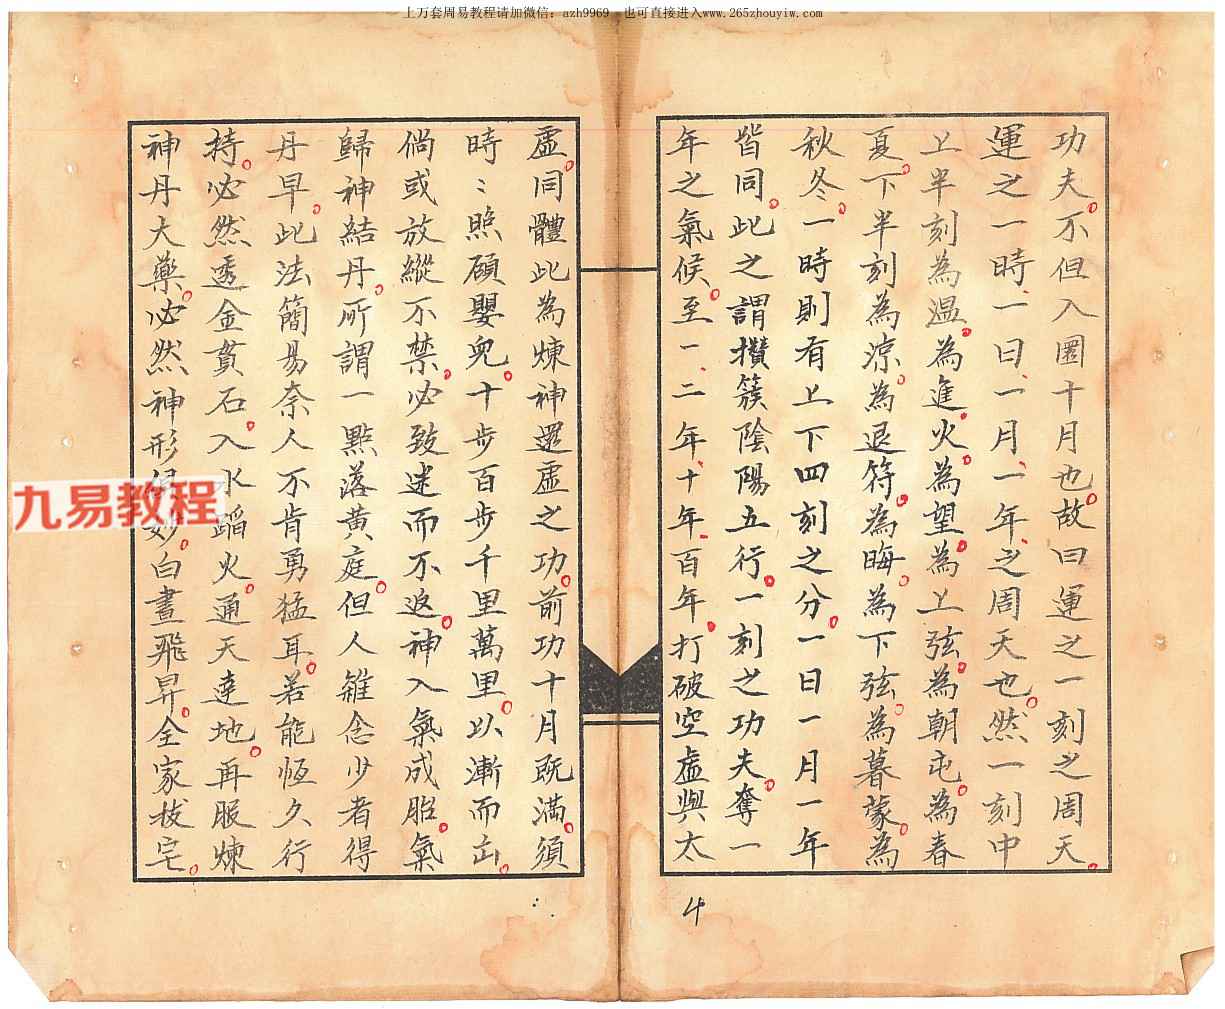 上万套周易教程请加微信：azh9969　也可直接进入www.265zhouyiw.com
功夫。不但入圜十月也。故曰運之一刻之周天。
運之一時、一日、一月、一年、之周天也。然一刻中
上半刻為温。為進。火。為望。為上弦。為朝屯。為春
夏。下半刻為涼。為退符。為晦。為下弦。為暮蒙。為
秋冬。一時則有上下四刻之分。一日一月一年
皆同。此之謂攢簇陰陽五行。一刻之功夫。奪一
年之氣候。至一、二年、十年、百年。打破空虛與太
虛。同體此為煉神還虛之功。前功十月既滿。須
時〻照顧嬰兒。十步百步千里萬里。以漸而出。
倘或放縱不禁。必致迷而不返。神入氣成胎。氣
歸神結丹。所謂一點落黃庭。但人雜念少者得
丹早。此法簡易奈人不肯勇猛耳。若能恆久行
持。必然透金貫石。入水蹈火。通天達地。再服煉
神丹大藥。必然神形俱妙。白晝飛昇。全家拔宅。
4
九易教程